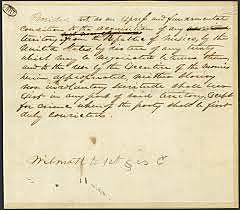 Provided, that as an express and fundamental
condition to the acquisition of any
territory from the Republic of Mexico by the
United States, by virtue of any treaty
which may be negotiated between them,
and to the use by the Executive of the moneys
herein appropriated, neither slavery
nor involuntary servitude shall ever
exist in any part of said territory, except
for crime, whereof the party shall be first
duly convicted.
Wilmot